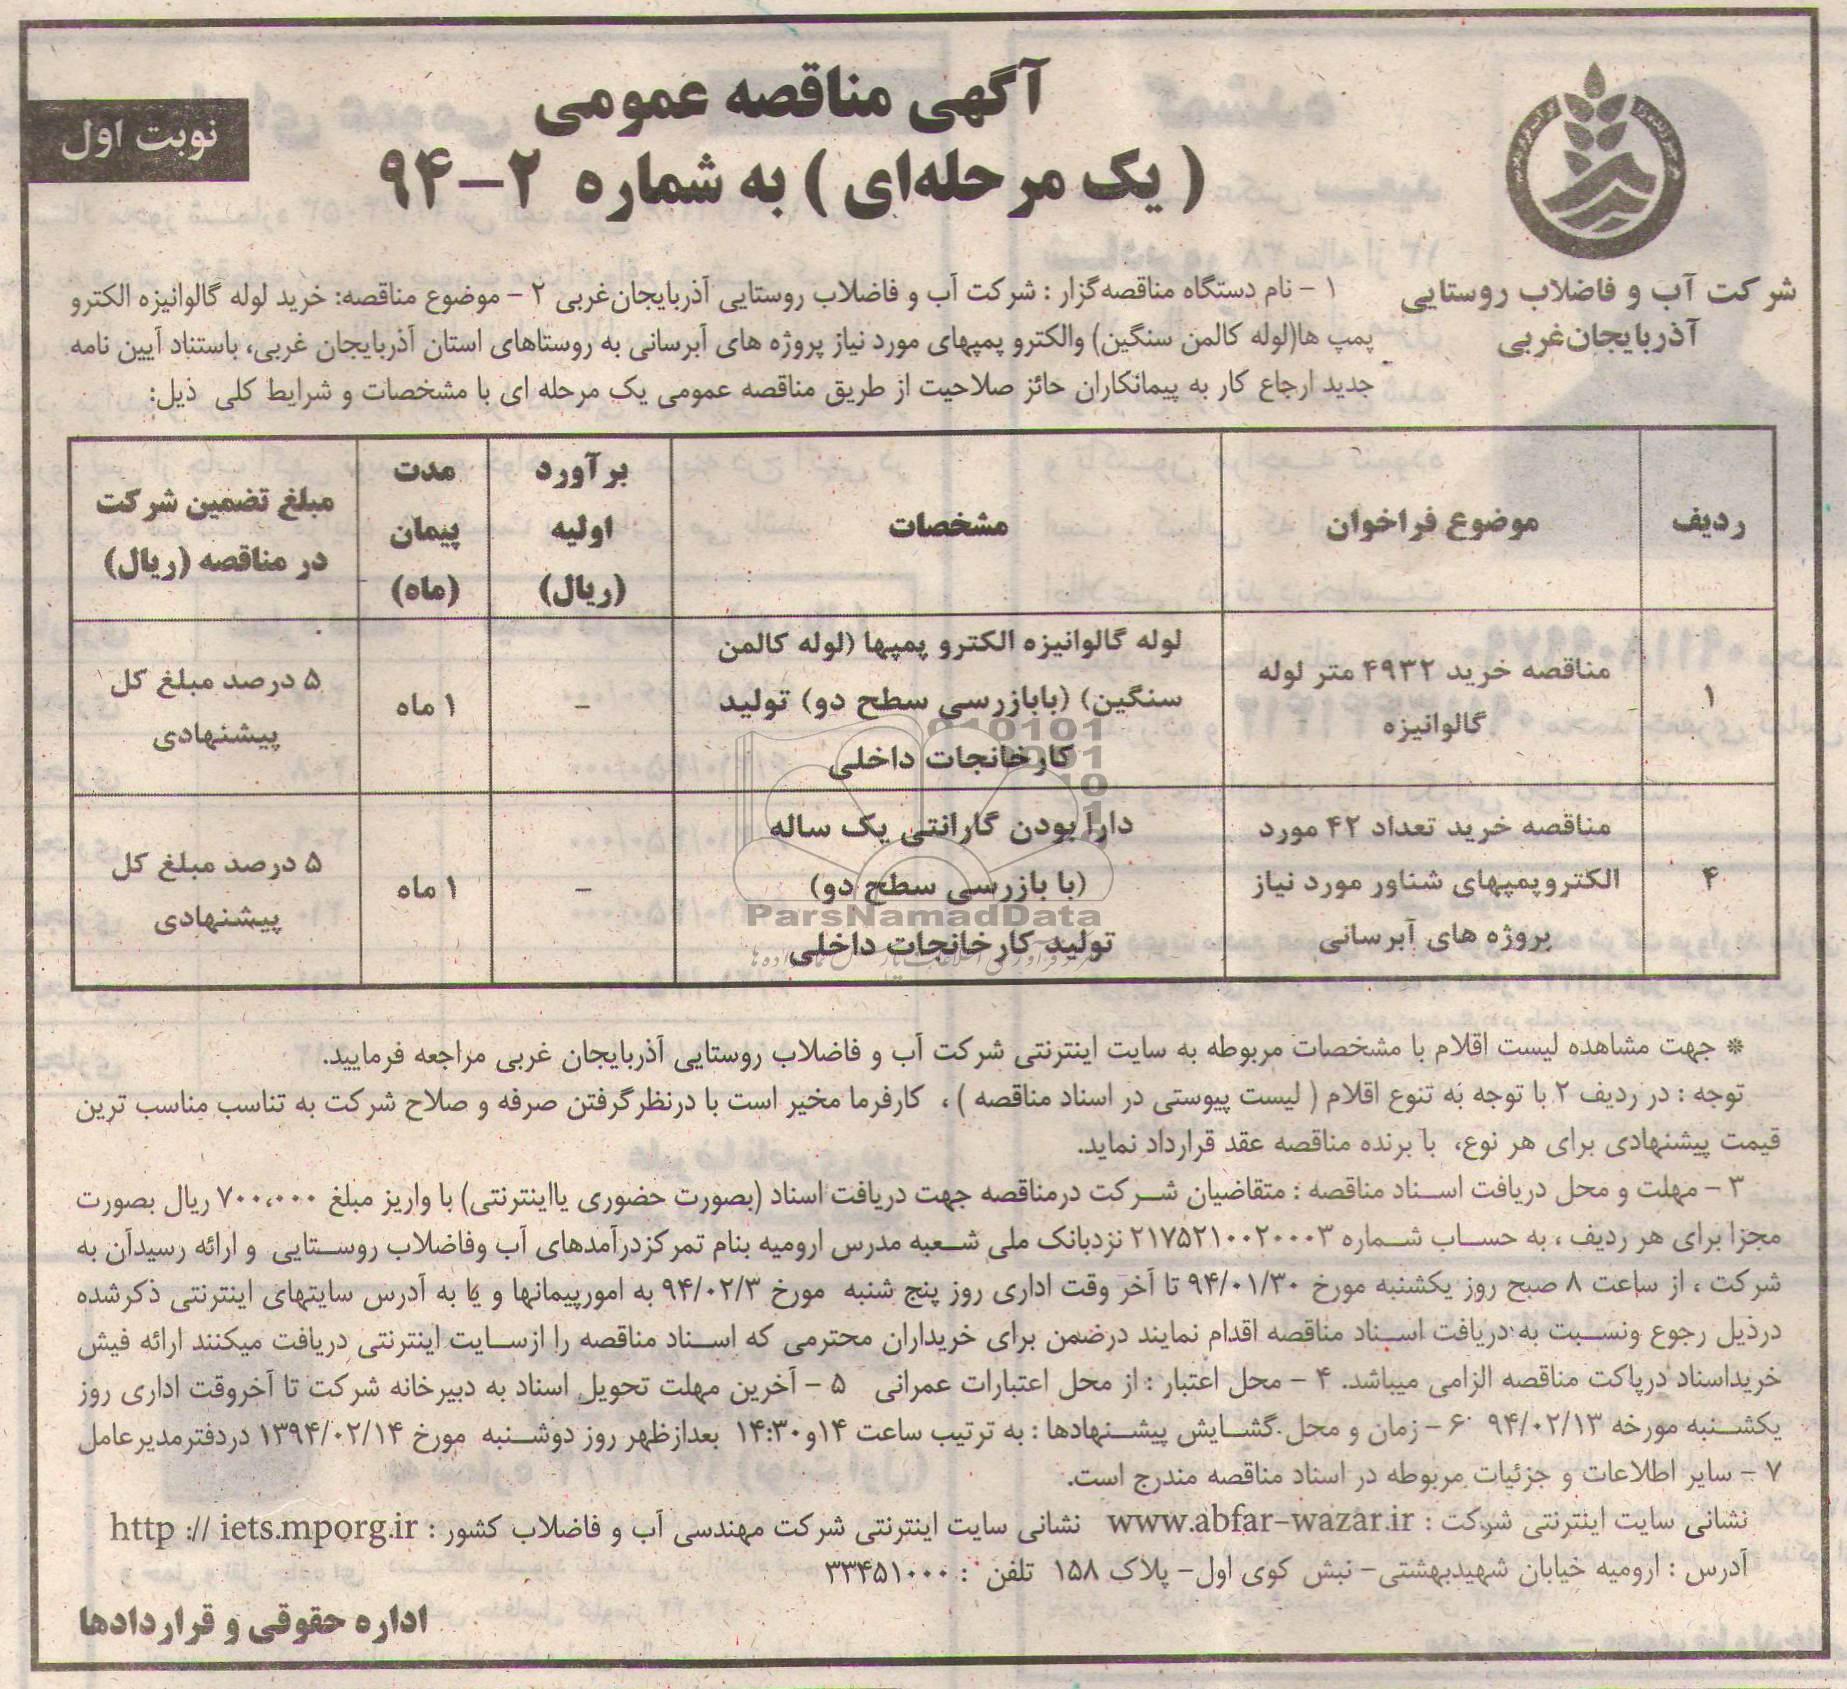 آگهی مناقصه عمومی
( یک مرحله‌ای ) به شماره ۲-۹۴
نوبت اول
شرکت آب و فاضلاب روستایی
آذربایجان‌غربی
۱ - نام دستگاه مناقصه‌گزار : شرکت آب و فاضلاب روستایی آذربایجان‌غربی ۲ - موضوع مناقصه: خرید لوله گالوانیزه الکترو
پمپ ها(لوله کالمن سنگین) والکترو پمپهای مورد نیاز پروژه های آبرسانی به روستاهای استان آذربایجان غربی، باستناد آیین نامه
جدید ارجاع کار به پیمانکاران حائز صلاحیت از طریق مناقصه عمومی یک مرحله ای با مشخصات و شرایط کلی ذیل:
ردیف
موضوع فراخوان
مشخصات
برآورد
اولیه
(ریال)
مدت
پیمان
(ماه)
مبلغ تضمین شرکت
در مناقصه (ریال)
۱
مناقصه خرید ۴۹۳۲ متر لوله
گالوانیزه
لوله گالوانیزه الکترو پمپها (لوله کالمن
سنگین) (بابازرسی سطح دو) تولید
کارخانجات داخلی
-
۱ ماه
۵ درصد مبلغ کل
پیشنهادی
۴
مناقصه خرید تعداد ۴۲ مورد
الکتروپمپهای شناور مورد نیاز
پروژه های آبرسانی
دارا بودن گارانتی یک ساله
(با بازرسی سطح دو)
تولید کارخانجات داخلی
-
۱ ماه
۵ درصد مبلغ کل
پیشنهادی
ParsNamadData
* جهت مشاهده لیست اقلام با مشخصات مربوطه به سایت اینترنتی شرکت آب و فاضلاب روستایی آذربایجان غربی مراجعه فرمایید.
توجه : در ردیف ۲ با توجه به تنوع اقلام ( لیست پیوستی در اسناد مناقصه ) ، کارفرما مخیر است با درنظرگرفتن صرفه و صلاح شرکت به تناسب مناسب ترین
قیمت پیشنهادی برای هر نوع، با برنده مناقصه عقد قرارداد نماید.
۳ - مهلت و محل دریافت اسناد مناقصه : متقاضیان شرکت درمناقصه جهت دریافت اسناد (بصورت حضوری یااینترنتی) با واریز مبلغ ۷۰۰،۰۰۰ ریال بصورت
مجزا برای هر ردیف ، به حساب شماره ۲۱۷۵۲۱۰۰۲۰۰۰۳ نزدبانک ملی شعبه مدرس ارومیه بنام تمرکزدرآمدهای آب وفاضلاب روستایی و ارائه رسیدآن به
شرکت ، از ساعت ۸ صبح روز یکشنبه مورخ ۹۴/۰۱/۳۰ تا آخر وقت اداری روز پنج شنبه مورخ ۹۴/۰۲/۳ به امورپیمانها و یا به آدرس سایتهای اینترنتی ذکرشده
درذیل رجوع ونسبت به دریافت اسناد مناقصه اقدام نمایند درضمن برای خریداران محترمی که اسناد مناقصه را ازسایت اینترنتی دریافت میکنند ارائه فیش
خریداسناد درپاکت مناقصه الزامی میباشد. ۴ - محل اعتبار : از محل اعتبارات عمرانی ۵ - آخرین مهلت تحویل اسناد به دبیرخانه شرکت تا آخروقت اداری روز
یکشنبه مورخه ۹۴/۰۲/۱۳ ۶ - زمان و محل گشایش پیشنهادها : به ترتیب ساعت ۱۴و۱۴:۳۰ بعدازظهر روز دوشنبه مورخ ۱۳۹۴/۰۲/۱۴ دردفترمدیرعامل
۷ - سایر اطلاعات و جزئیات مربوطه در اسناد مناقصه مندرج است.
نشانی سایت اینترنتی شرکت : www.abfar-wazar.ir نشانی سایت اینترنتی شرکت مهندسی آب و فاضلاب کشور : http :// iets.mporg.ir
آدرس : ارومیه خیابان شهیدبهشتی- نبش کوی اول- پلاک ۱۵۸ تلفن : ۳۳۴۵۱۰۰۰
اداره حقوقی و قراردادها